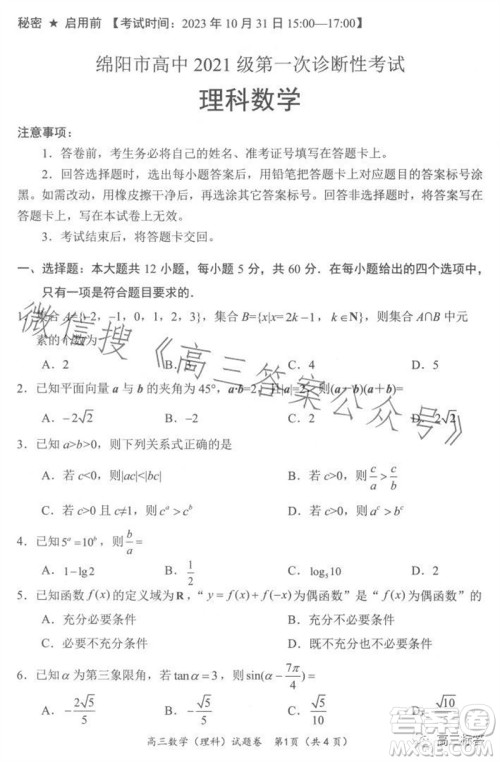 秘密 ★ 启用前 【考试时间：2023 年 10 月 31 日 15:00—17:00】
绵阳市高中 2021 级第一次诊断性考试
理科数学
注意事项：
1．答卷前，考生务必将自己的姓名、准考证号填写在答题卡上。
2．回答选择题时，选出每小题答案后，用铅笔把答题卡上对应题目的答案标号涂
黑。如需改动，用橡皮擦干净后，再选涂其它答案标号。回答非选择题时，将答案写在
答题卡上，写在本试卷上无效。
3．考试结束后，将答题卡交回。
一、选择题：本大题共 12 小题，每小题 5 分，共 60 分．在每小题给出的四个选项中，
只有一项是符合题目要求的．
A={-2，-1，0，1，2}，集合 B={x|x=2k-1，k∈N}，则集合 A∩B 中元
素的个数为
A．2 B．3 C．4 D．5
2．已知平面向量 a 与 b 的夹角为 45°，
A．-2√2 B．-2 C．2 D．2√2
3．已知 a>b>0，则下列关系式正确的是
A．若 c<0，则|ac|<|bc| B．若 c>0，则 c/a > c/b
C．若 c>0 且 c≠1，则 c^a > c^b D．若 c>0，则 a^c > b^c
4．已知 5^a=10^b，则 b/a =
A．1-lg2 B．1/2 C．lg2 D．2
5．已知函数 f(x) 的定义域为 R，“y=f(x)+f(-x) 为偶函数”是“f(x) 为偶函数”的
A．充分必要条件 B．充分不必要条件
C．必要不充分条件 D．既不充分也不必要条件
6．已知 α 为第三象限角，若 tanα=3，则 sin(α-7π/4)=
A．-2√5/5 B．-√5/5 C．√5/5 D．2√5/5
高三数学（理科）试题卷 第1页（共 4 页）
微信搜《高三答案公众号》
高三标答